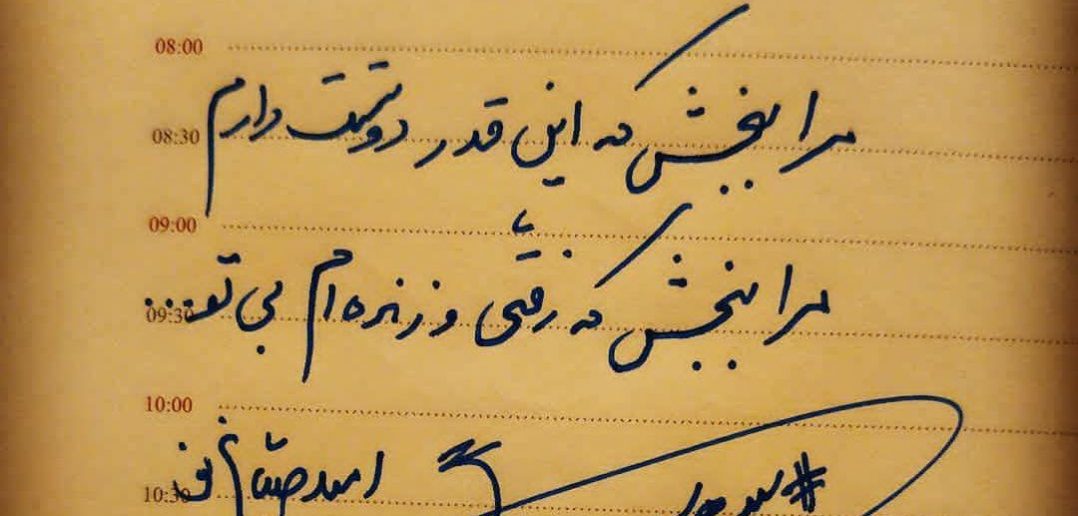 08:00
مرا ببخش که این قدر دوستت دارم
08:30
09:00
مرا ببخش که رفتی و زنده ام بی تو...
09:30
10:00
10:30